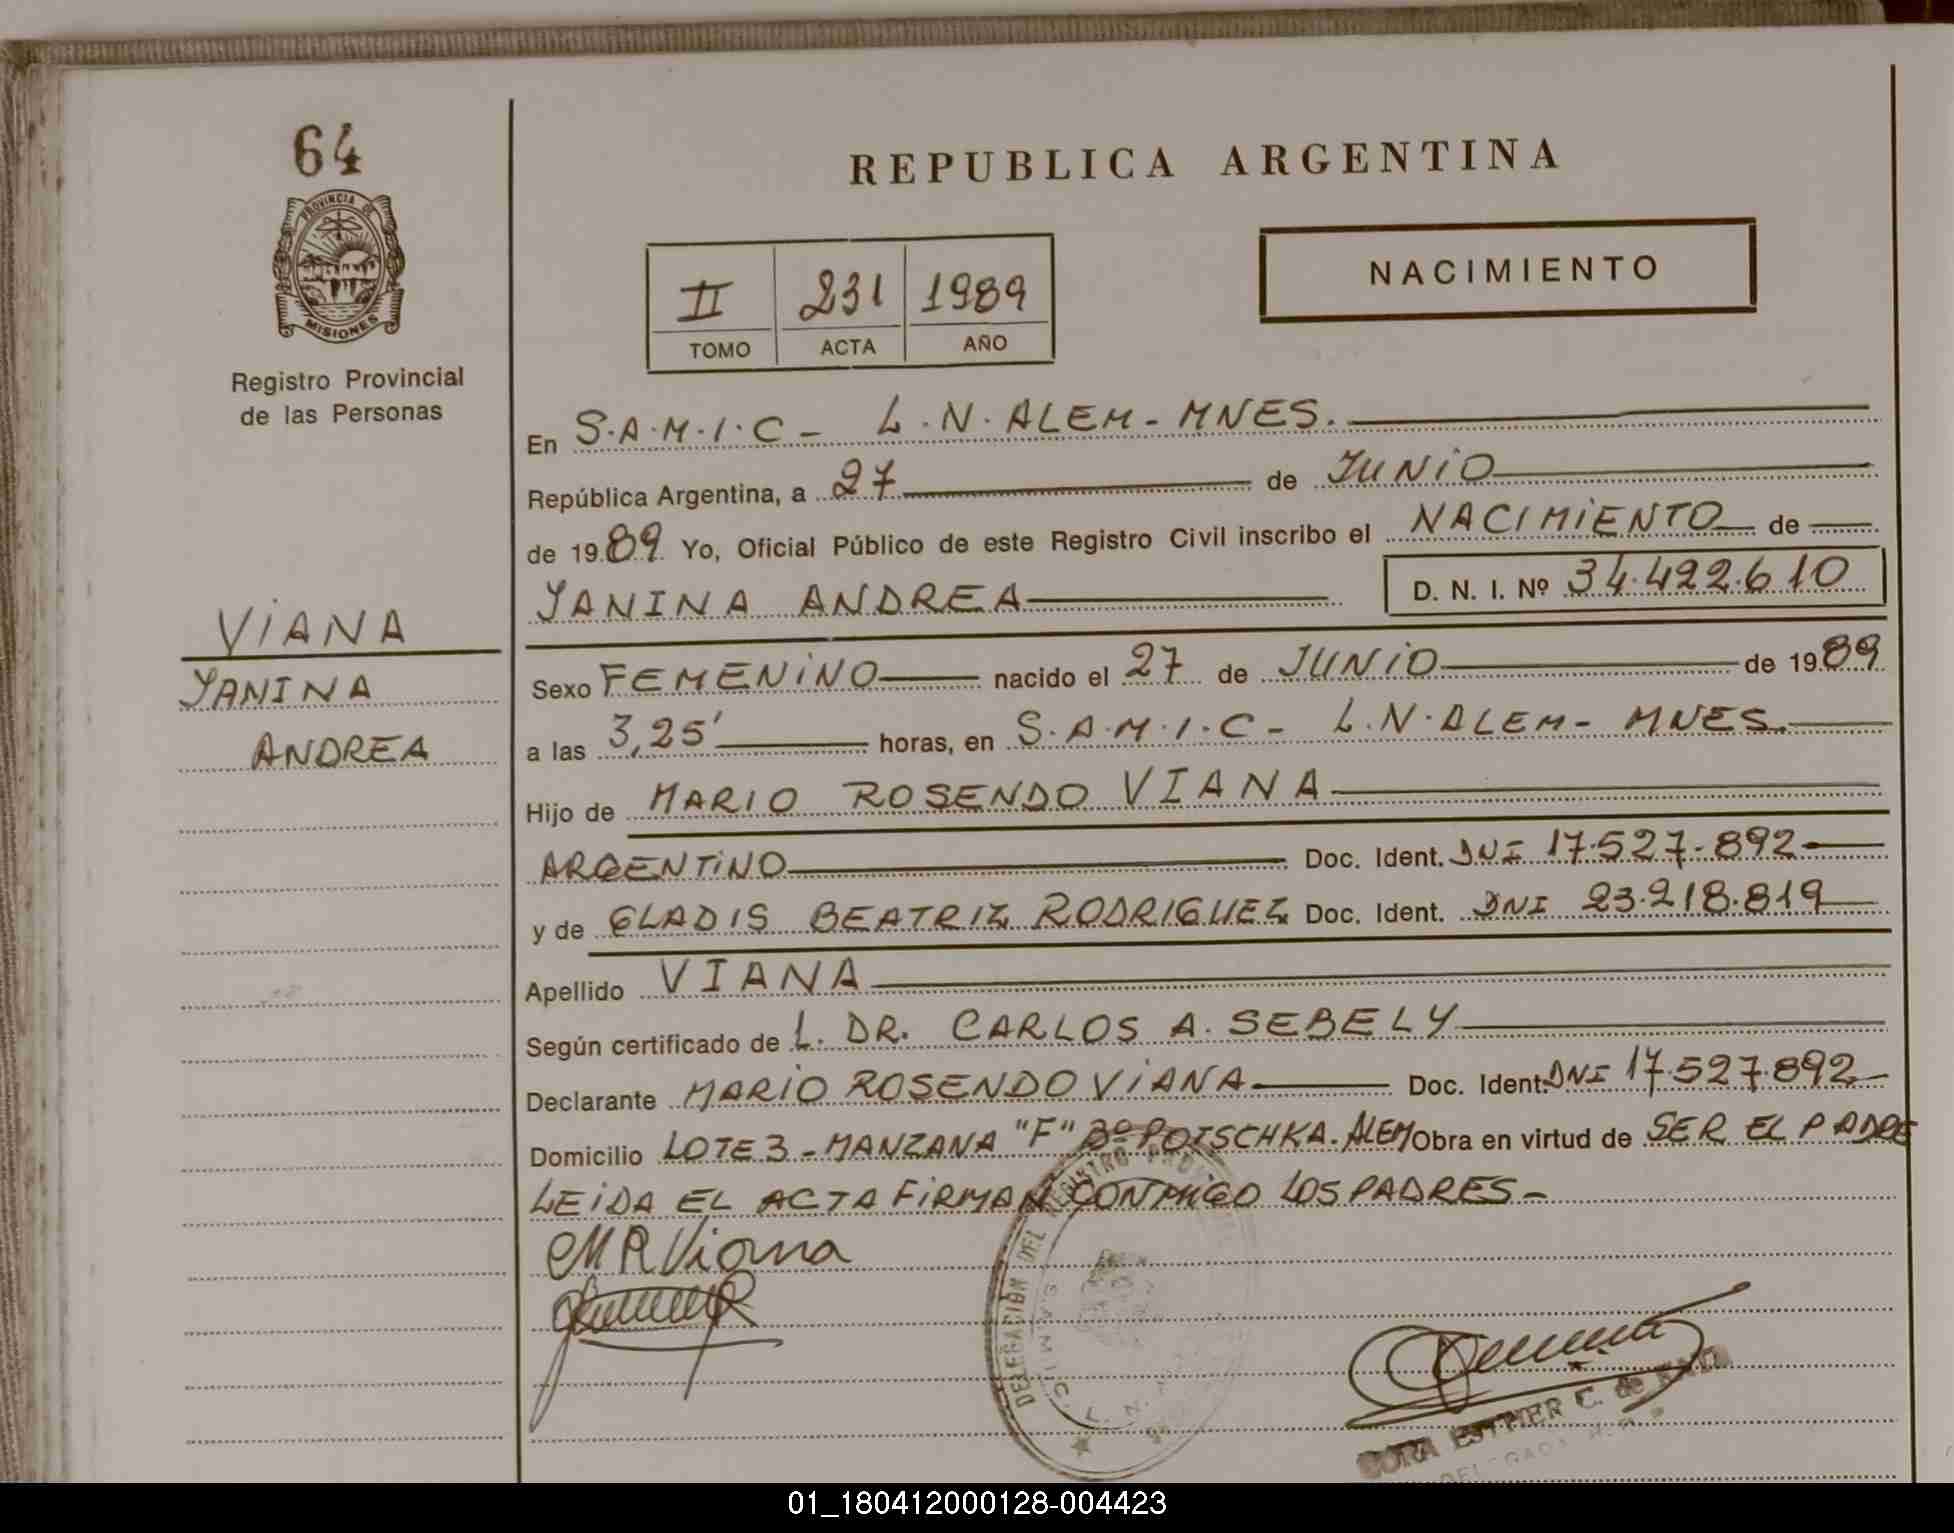 64
PROVINCIA DE
MISIONES
Registro Provincial
de las Personas
REPUBLICA ARGENTINA
II 231 1989
TOMO ACTA AÑO
NACIMIENTO
En S.A.M.I.C - L.N.ALEM - MNES.
República Argentina, a 27 de JUNIO
de 1989 Yo, Oficial Público de este Registro Civil inscribo el NACIMIENTO de
YANINA ANDREA D. N. I. Nº 34.422.610
VIANA
YANINA
ANDREA
Sexo FEMENINO nacido el 27 de JUNIO de 1989
a las 3,25' horas, en S.A.M.I.C - L.N.ALEM - MNES.
Hijo de MARIO ROSENDO VIANA
ARGENTINO Doc. Ident. DNI 17.527.892
y de GLADIS BEATRIZ RODRIGUEZ Doc. Ident. DNI 23.218.819
Apellido VIANA
Según certificado de L. DR. CARLOS A. SEBELY
Declarante MARIO ROSENDO VIANA Doc. Ident. DNI 17.527.892
Domicilio LOTE 3 - MANZANA "F" Bº POTSCHKA. ALEM Obra en virtud de SER EL PADRE
LEIDA EL ACTA FIRMAN CONMIGO LOS PADRES -
M R Viana
DELEGACIÓN DEL REGISTRO
S.A.M.I.C. L. N.
ESTHER E. de
01_180412000128-004423